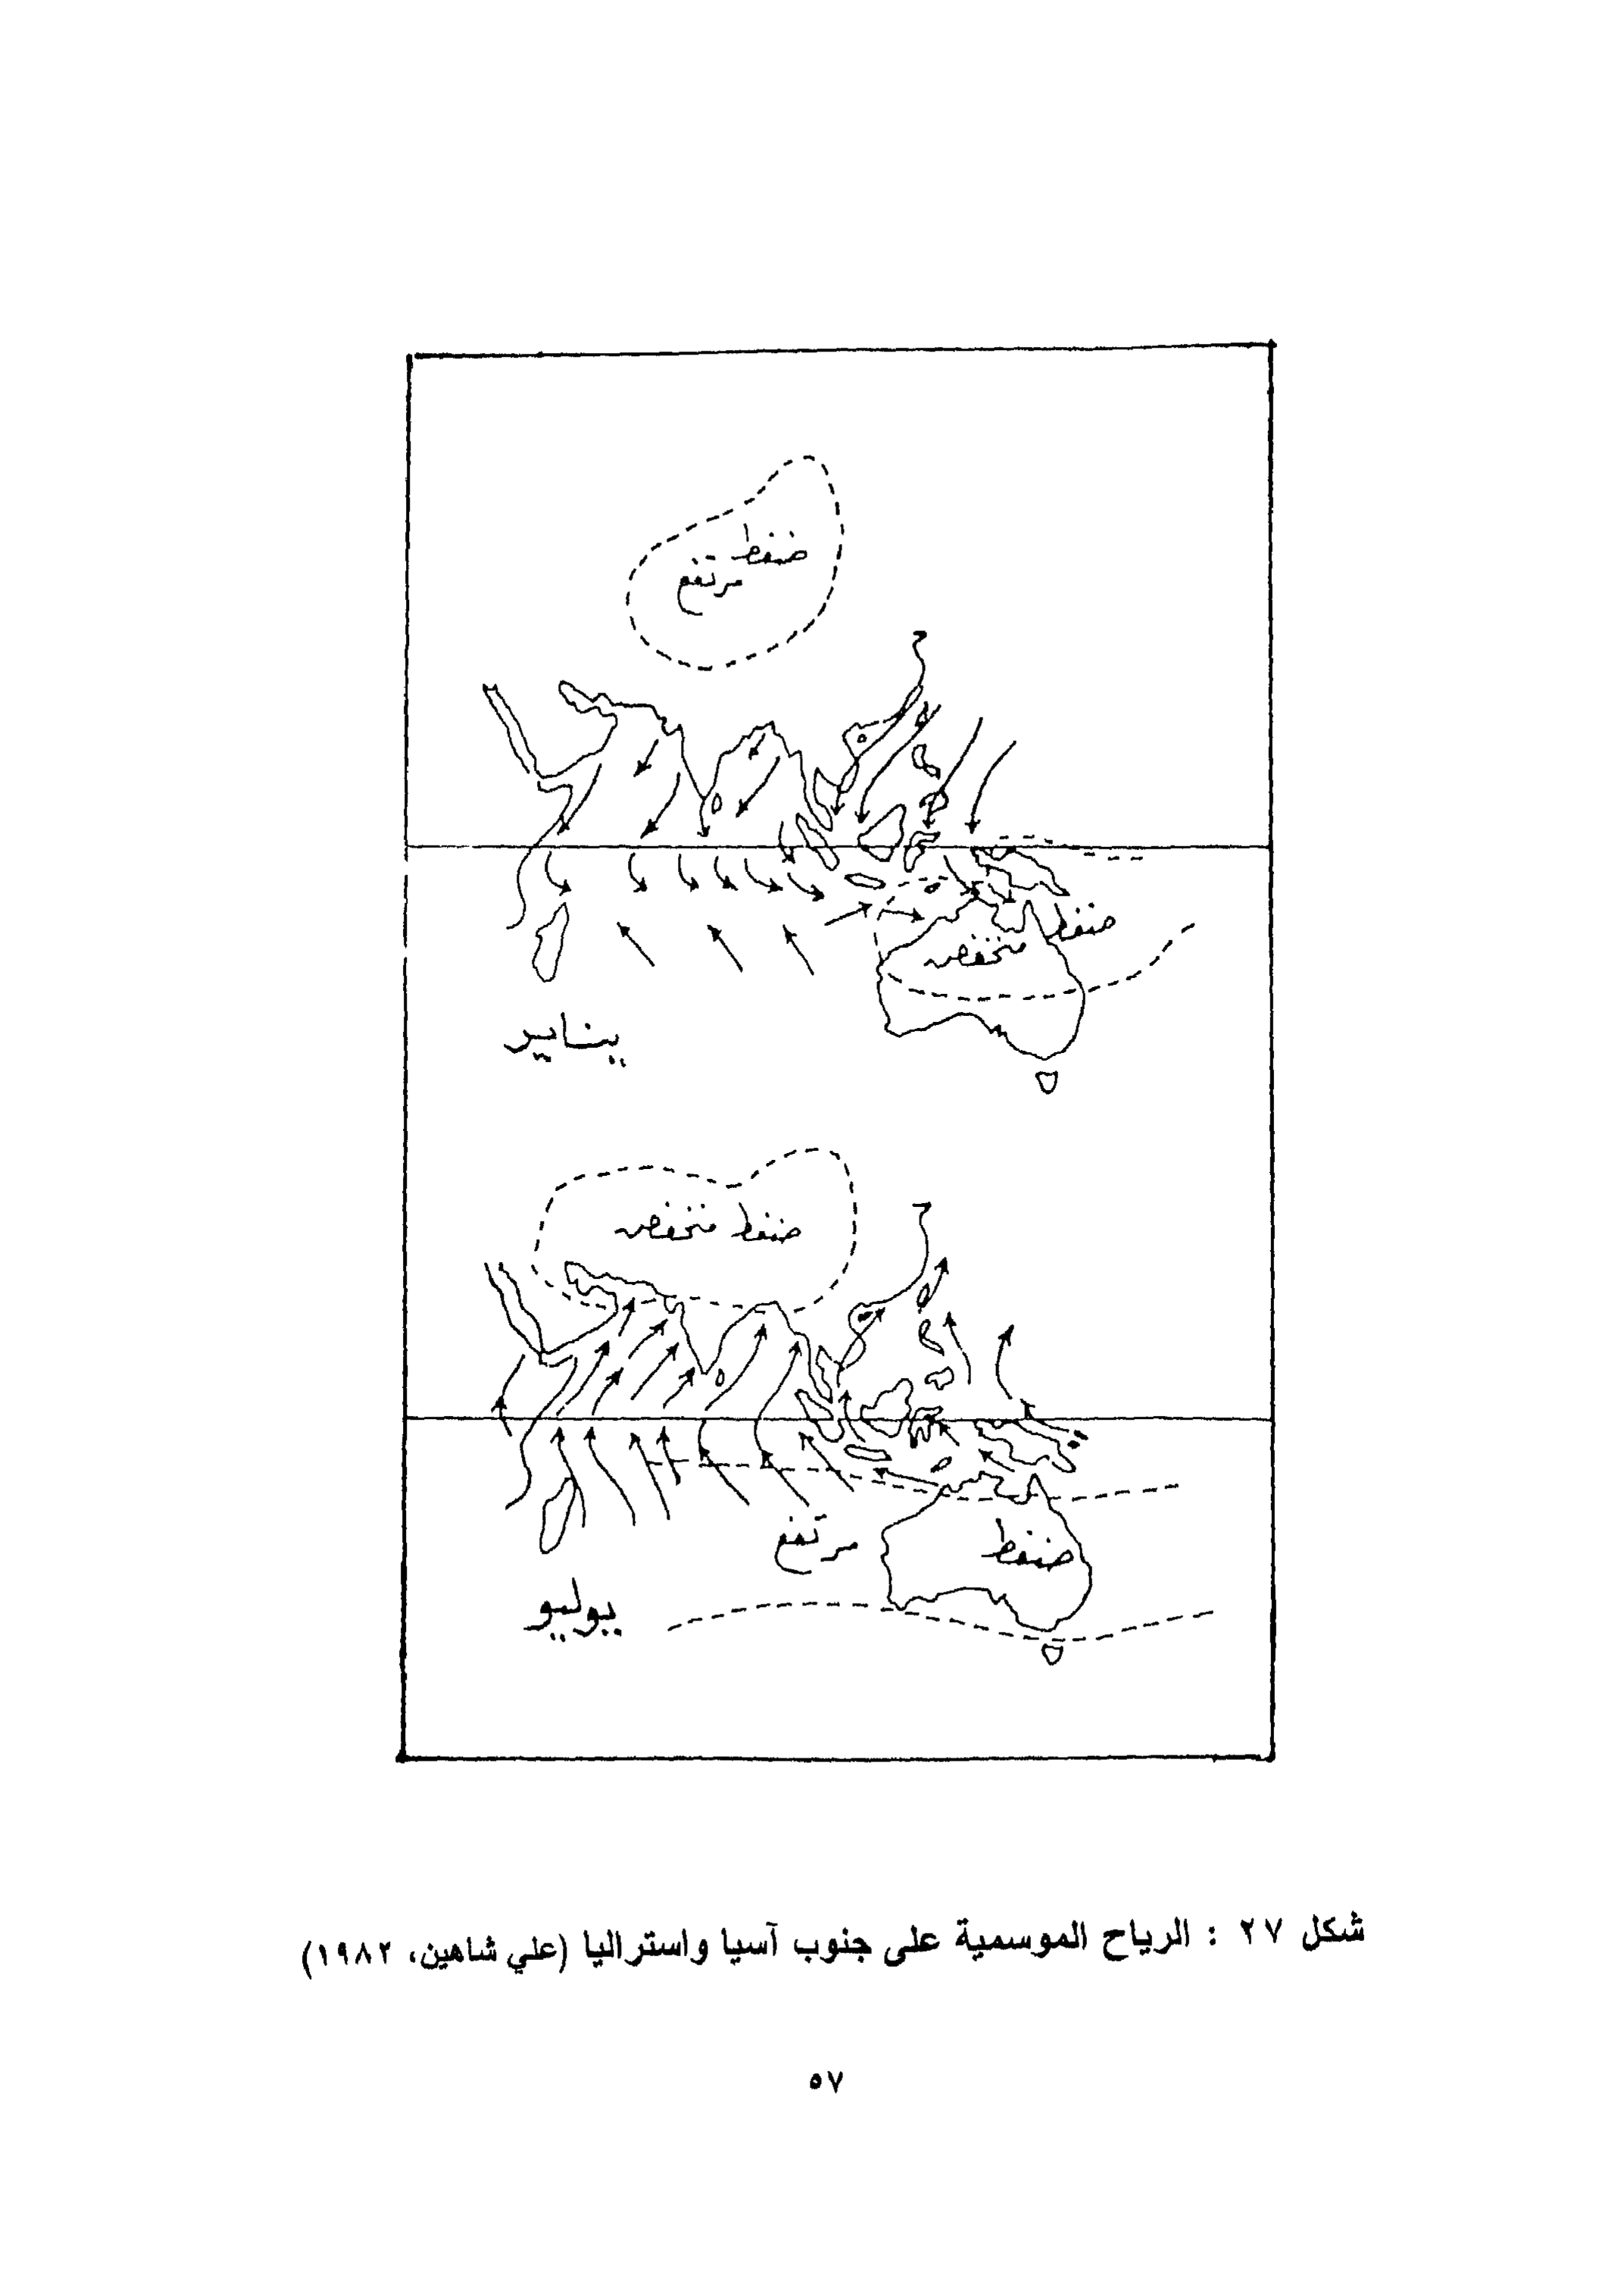 ضغط
مرتفع
ضغط
منخفض
يناير
ضغط منخفض
ضغط
مرتفع
يوليو
شكل ٢٧ : الرياح الموسمية على جنوب آسيا واستراليا (علي شاهين، ١٩٨٢)
٥٧